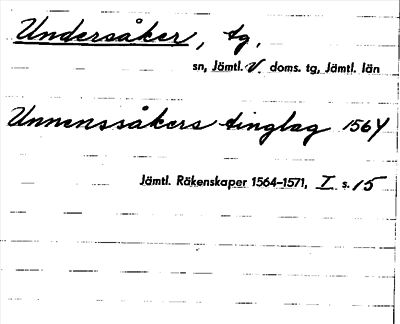 Undersåker, tg.
sn, Jämtl. V. doms. tg, Jämtl. län
Unnenssåkers tinglag 1564
Jämtl. Räkenskaper 1564–1571, I s. 15